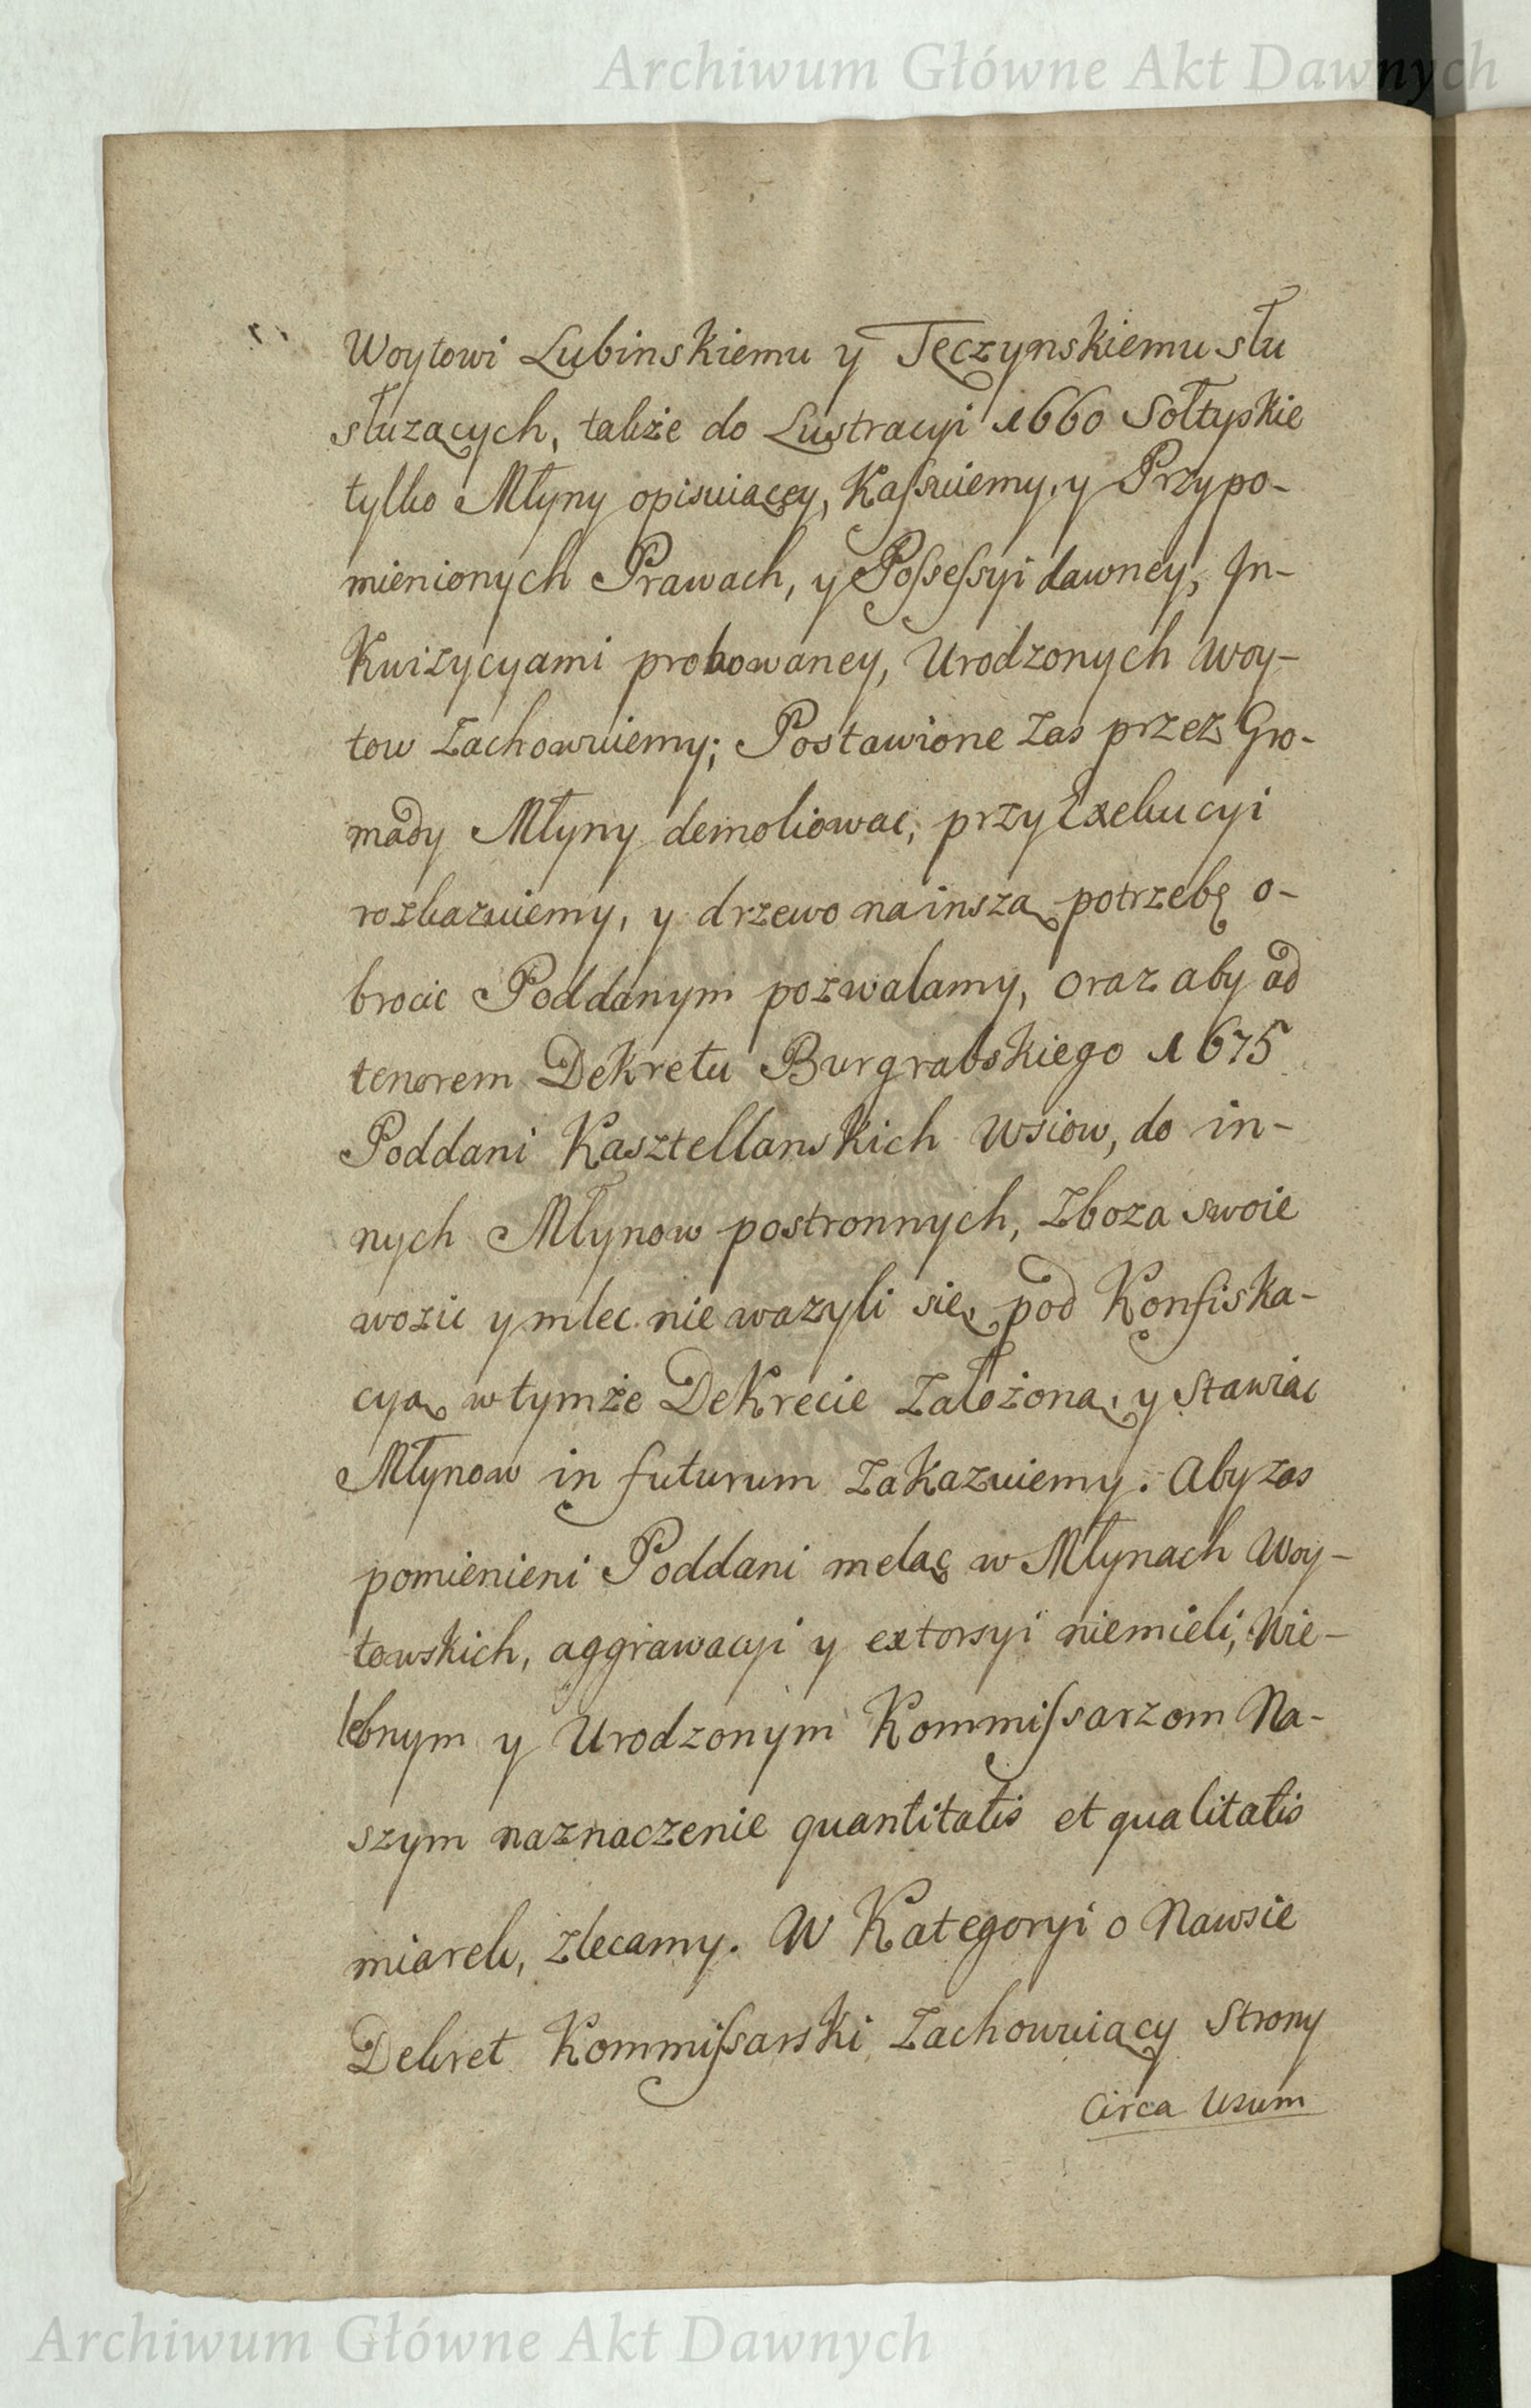 Archiwum Główne Akt Dawnych
Woytowi Lubinskiemu y Tęczynskiemu słu
słuzących, także do Lustracyi 1660 Sołtyskie
tylko Młyny opisuiącęy, Kassuiemy, y Przypo-
mienionych Prawach, y Possessyi dawney, In-
kwizycyami probowaney, Urodzonych Woy-
tow Zachowuiemy; Postawione Zas przez Gro-
mady Młyny demoliowac, przy Exekucyi
rozkazuiemy, y drzewo na inszą potrzebę o-
brocic Poddanym pozwalamy, oraz aby ad
tenorem Dekretu Burgrabskiego 1675
Poddani Kasztellanskich Wsiow, do in-
nych Młynow postronnych, Zboza swoie
wozic y mlec nie wazyli się, pod Konfiska-
cyą w tymże Dekrecie Założoną, y Stawiac
Młynow in futurum Zakazuiemy. Aby zas
pomienieni Poddani meląc w Młynach Woy-
towskich, aggrawacyi y extorsyi niemieli, Wie-
lebnym y Urodzonym Kommissarzom Na-
szym naznaczenie quantitatis et qualitatis
miarek, Zlecamy. W Kategoryi o Nawsie
Dekret Kommissarski Zachowuiący Strony
Circa Usum
Archiwum Główne Akt Dawnych